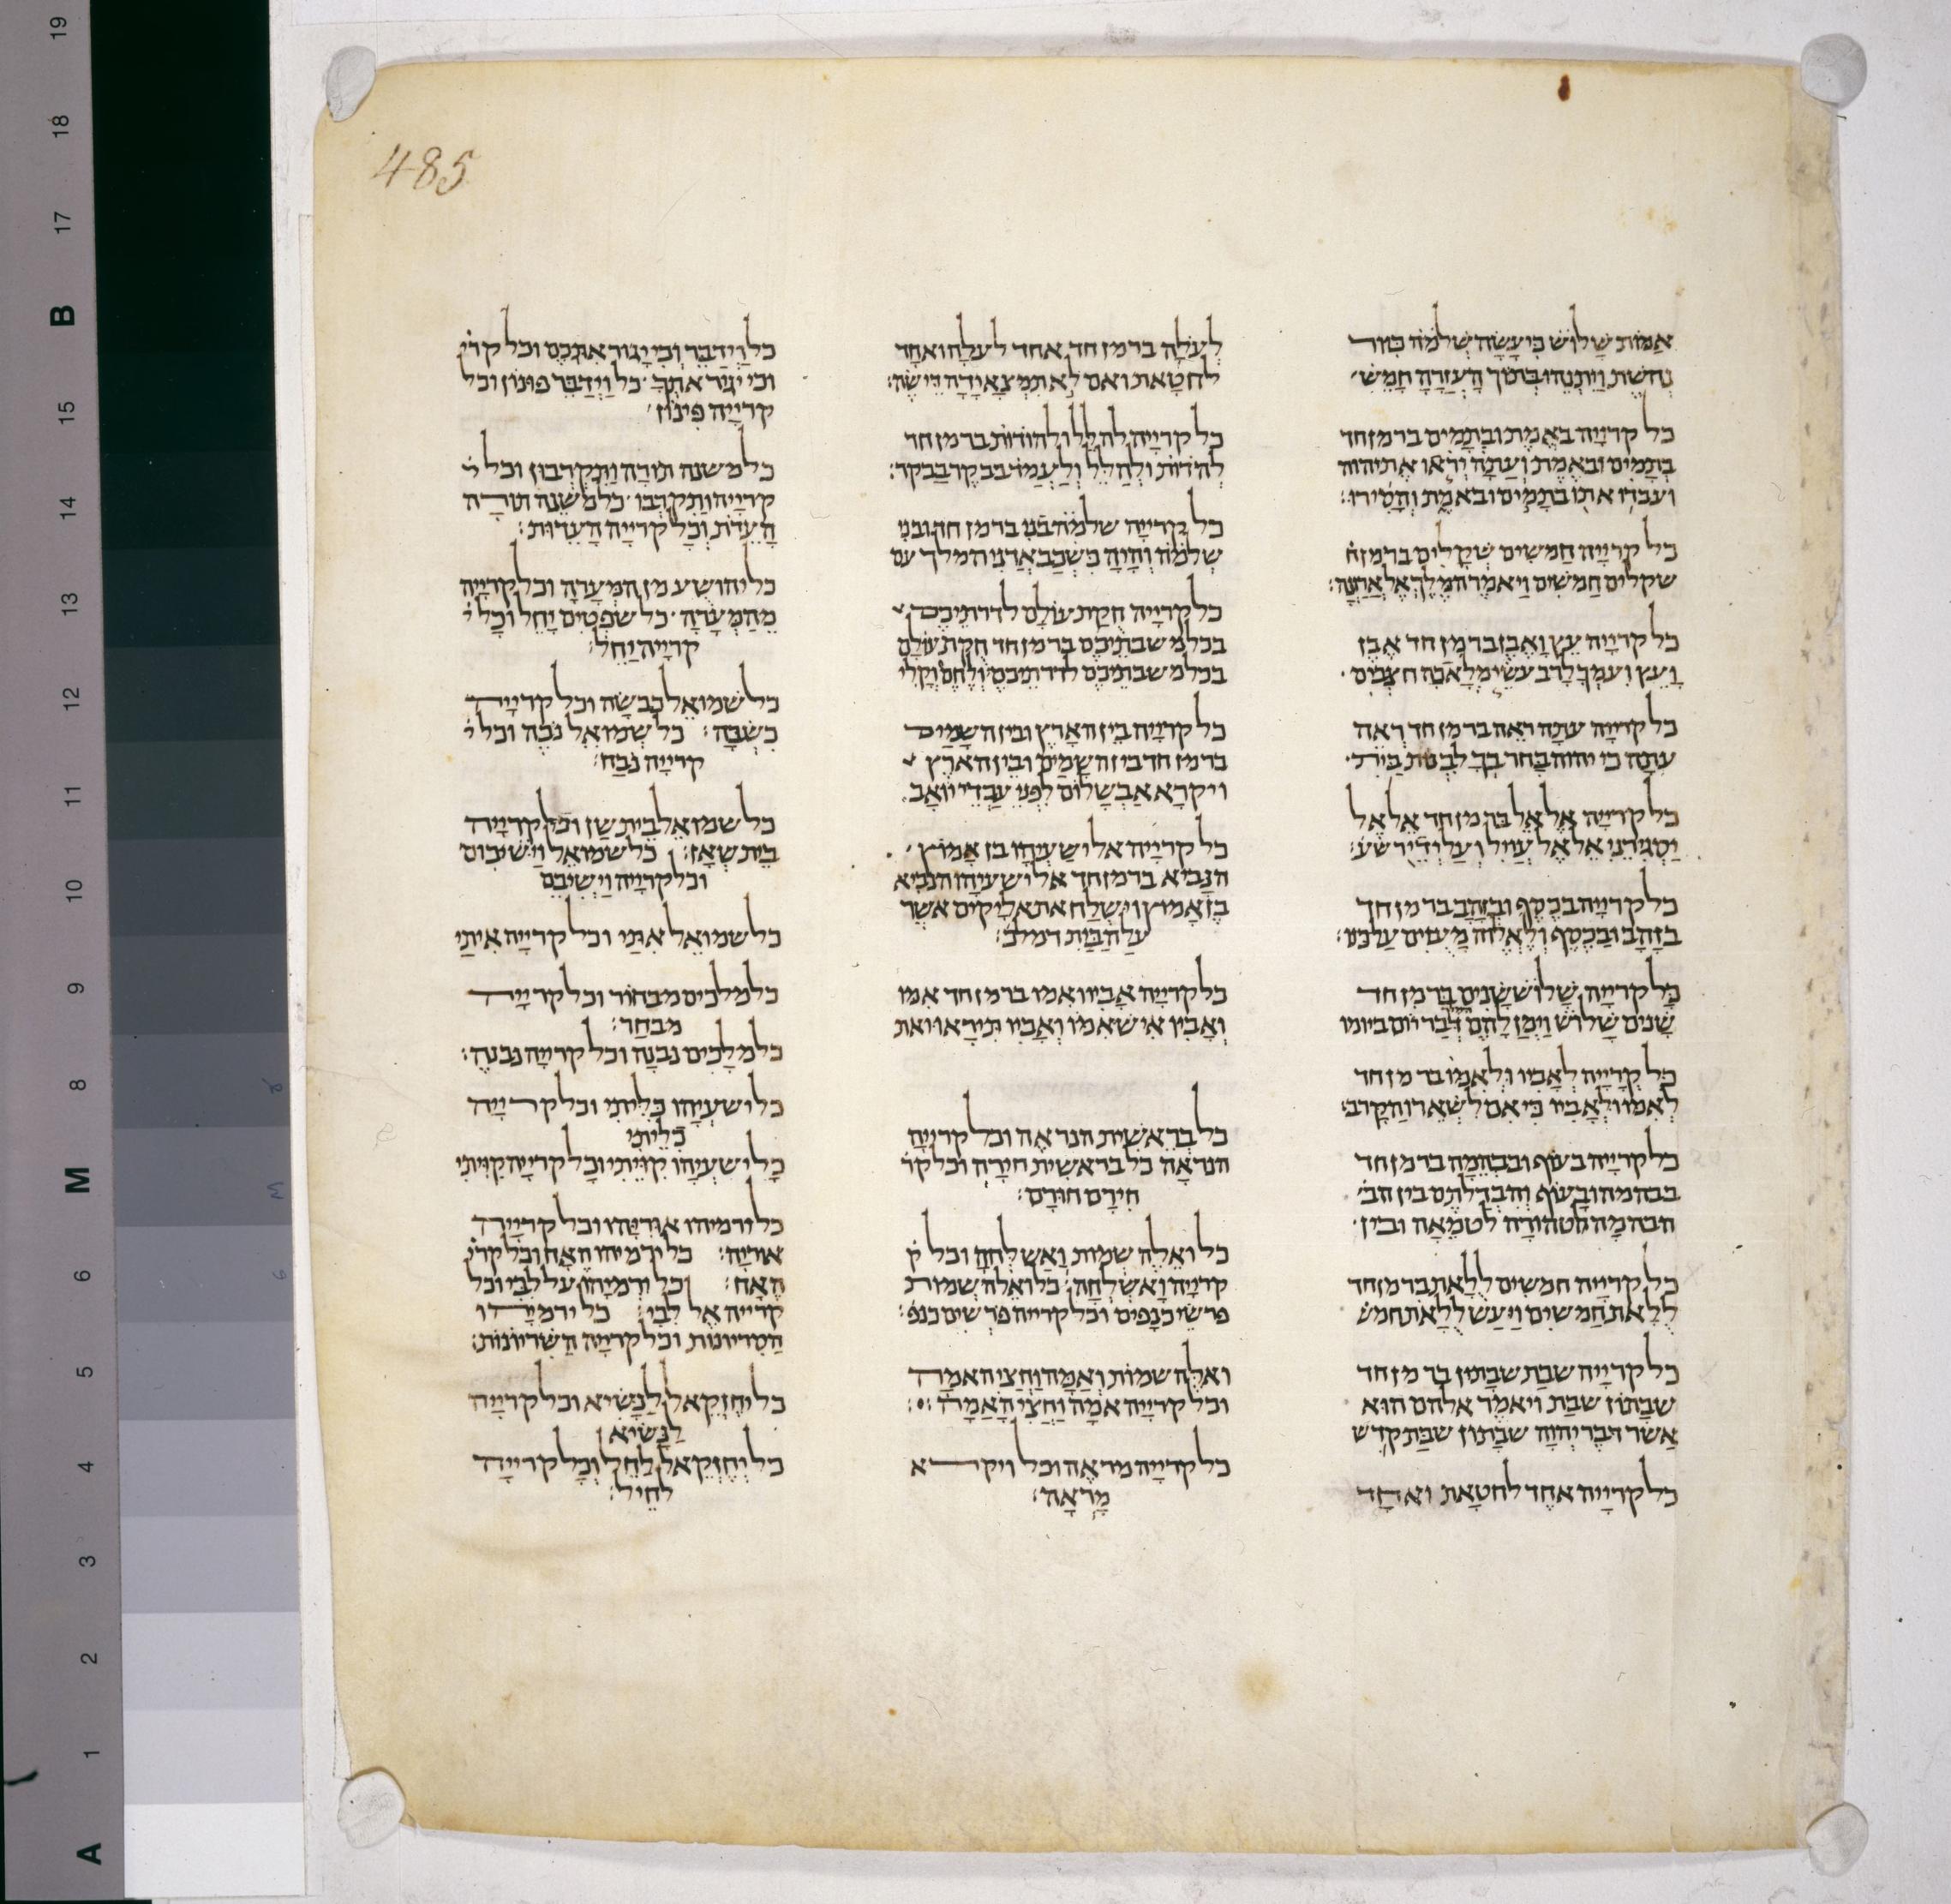 485
אַמּוֹת שָׁלוֹשׁ כִּי עָשָׂה שְׁלֹמֹה כִּיּוֹר
נְחֹשֶׁת וַיִּתְּנֵהוּ בְּתוֹךְ הָעֲזָרָה חָמֵשׁ
כל קריָיה באֱמֶת ובְתָמִים בר מן חד
בְּתָמִים ובֶאֱמֶת וְעַתָּה יְראוּ אֶת יהוה
ועבדו אתו בתָמִים ובאמֶת וְהָסִירוּ׃
כל קריָיה חמִשים שְקָלים בר מן ח
שקלים חֲמִשִּׁים וַיֹּאמֶר הַמֶּלֶךְ אֶל אֲרַוְנָה׃
כל קריָיה עֵץ וָאֶבֶן בר מן חד אֶבֶן
וָעֵץ ועִמְּךָ לָרֹב עֹשֵׂי מְלָאכָה חֹצְבִים
כל קרייָה עתָה ראֵה בר מן חד רְאֵה
עתָה כי יהוה בָּחַר בְּךָ לִבְנוֹת בַּיִת
כל קריָיה אֶל אֵל בר מן חד אֵל אֶל
יַסְגִּירֵנִי אֵל אֶל עֲוִיל וְעַל יְדֵי רשע׃
כל קריָיה בכֶסֶף ובְזָהָב בר מן חד
בזָהָב ובַכֶּסֶף וְלֶאֱלֹהַּ מָעֻזִּים על כנו׃
כל קרייָה שָלוֹש שָׁנִים בר מן חד
שָׁנִים שָׁלוֹשׁ וַיְמַן לָהֶם דְּבַר יוֹם ביומו
כל קְריָיה לְאָביו וּלְאִמּוֹ בר מן חד
לְאִמּוֹ וּלְאָבִיו כִּי אִם לִשְׁאֵרוֹ הַקָּרֹב׃
כל קריָיה בעוֹף ובבְהֵמָה בר מן חד
בבהמה ובָעוֹף וְהִבְדַּלְתֶּם בין הב
הבהמָה הטהורָה לטמֵאָה ובין
כל קרייה חמִשים לֻלָאֹת בר מן חד
לֻלָאֹת חֲמִשִּים וַיַּעַשׂ לֻלָאֹת חמש
כל קריָיה שבַת שבָתון בר מן חד
שבָתוֹן שבַת ויאמֶר אלהם הוא
אֲשֶׁר דִּבֶּר יְהוָה שבָתון שבַת קֹדֶש
כל קריָיה אחָד לחטָאת ואחָד
לְעֹלָה בר מן חד אחד לעלָה ואחָד
לחטָאת ואם לֹא תִמְצָא יָדָהּ דֵּי שֶׂה׃
כל קריָיה להַלֵּל ולְהודות בר מן חד
להֹדוֹת ולְהַלֵּל וְלַעֲמֹד בבֹּקֶר בַּבֹּקֶר׃
כל קרייָה שלמֹה בְּנִי בר מן חד ובני
שְלֹמֹה וְהָיָה כִּשְׁכַב אֲדֹנִי המלך עם
כל קריָיה חקַת עוֹלָם לדרתֵיכֶם
בכל משבתֵיכם בר מן חד חֻקַּת עולָם
בכל משבתיכֶם לדרתֵיכֶם וְלֶחֶם וְקָלִי
כל קריָיה בֵין הארֶץ ובין השמָיִם
בר מן חד בין השָמַים ובין הארֶץ
ויקרָא אַבְשָלוֹם לִפְנֵי עַבְדֵי יוֹאָב
כל קריָיה אל ישַעְיָהו בן אָמוֹץ
הנָּבִיא בר מן חד אל ישעיָהו הנביא
בֶּן אָמוֹץ וישְלַח את אלְיָקִים אשֶר
על הַבַּיִת דמלכ׃
כל קריָיה אָביו ואִמו בר מן חד אִמו
וְאָבִיו אִישׁ אִמּוֹ וְאָבִיו תִּירָאוּ ואת
כל בְּרֵאשִׁית הנראֶה וכל קריָיה
הנראָה כל בראשית חירָה וכל קר
חִירָם חוּרָם׃
כל ואֵלֶה שְמות וָאֶשְלְחָה וכל ק
קריָיה וָאֶשְלְחָה׃ כל ואלה שְמות
פרשֵׂי כנָפים וכל קרייה פרְשים כנפ׃
ואלֶה שמוֹת וְאַמָּה וַחֲצִי האמָה
וכל קריָיה אמָה וַחֲצִי הָאַמָּה׃
כל קריָיה מראֶה וכל ויקרא
מָרְאָה׃
כל וַיְדַבֵּר וְכִי יָגוּר אִתְּכֶם וכל קרי
וכי יגוּר אִתְּךָ כל וַיְדַבֵּר פּוּנֹן וכל
קריָיה פִּינֹן
כל משנה תורָה וַתִּקְרְבוּן וכל
קריָיה וַתִּקְרְבוּ כל משֵנה תורה
הָעֵדֹת וְכָל קריָיה הָעֵדוּת׃
כל יהושֻעַ מן הַמְּעָרָה וכל קריָיה
מֵהַמְּעָרָה כל שפְטים יָחֵל וכָל
קריָיה יַחֵל׃
כל שמואֵל כִּבְשָׂה וכל קריָיה
כִּשְׂבָּה׃ כל שְמואֵל נֹכַח וכל
קריָיה נֹבַח׃
כל שמואל בית שַן וכל קריָיה
בית שְאָן׃ כל שמואל וַיְשִׁיבוּם
וכל קריָיה וַיְשִׁיבֵם
כל שמואֵל אִתַּי וכל קרייה אִיתַי
כל מלכים מבחוֹר וכל קריָיה
מבחַר׃
כל מלָכים גבעָה וכל קריָיה גבעה׃
כל ישַעְיָהו כִּלֵּיתִי וכל קריָיה
כִּלִּיתִי
כָל ישַעְיָהו קִוֵּיתִי וכָל קריָיה קִוִּיתִי
כל ירמיהו אוּרִיָּהוּ וכל קריָיה
אוּרִיָּה׃ כל ירמיהו הָאָח וכל קרי
הֶאָח׃ וכל ירמיָהו על לִבִּי וכל
קרייה אֶל לִבִּי׃ כל ירמיָהו
הַסִּרְיוֹנוֹת וכל קריָיה הַשִּׁרְיוֹנוֹת׃
כל יחֶזְקֵאל לַנָּשִׂיא וכל קריָיה
לנָשִׂיא
כל יחֶזְקֵאל לַחֵל וכָל קרייָה
לחֵיל׃